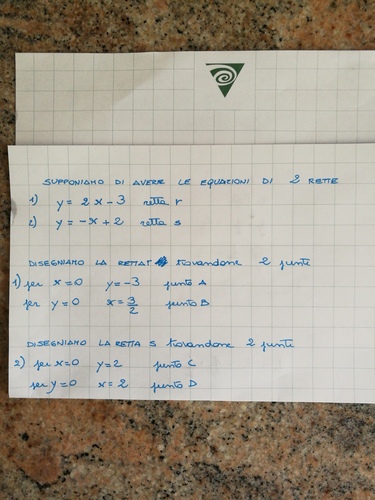 SUPPONIAMO DI AVERE LE EQUAZIONI DI 2 RETTE
1) y = 2x - 3 retta r
2) y = -x + 2 retta s
DISEGNIAMO LA RETTA r trovandone 2 punti
1) per x=0 y=-3 punto A
per y=0 x=3/2 punto B
DISEGNIAMO LA RETTA s trovandone 2 punti
2) per x=0 y=2 punto C
per y=0 x=2 punto D